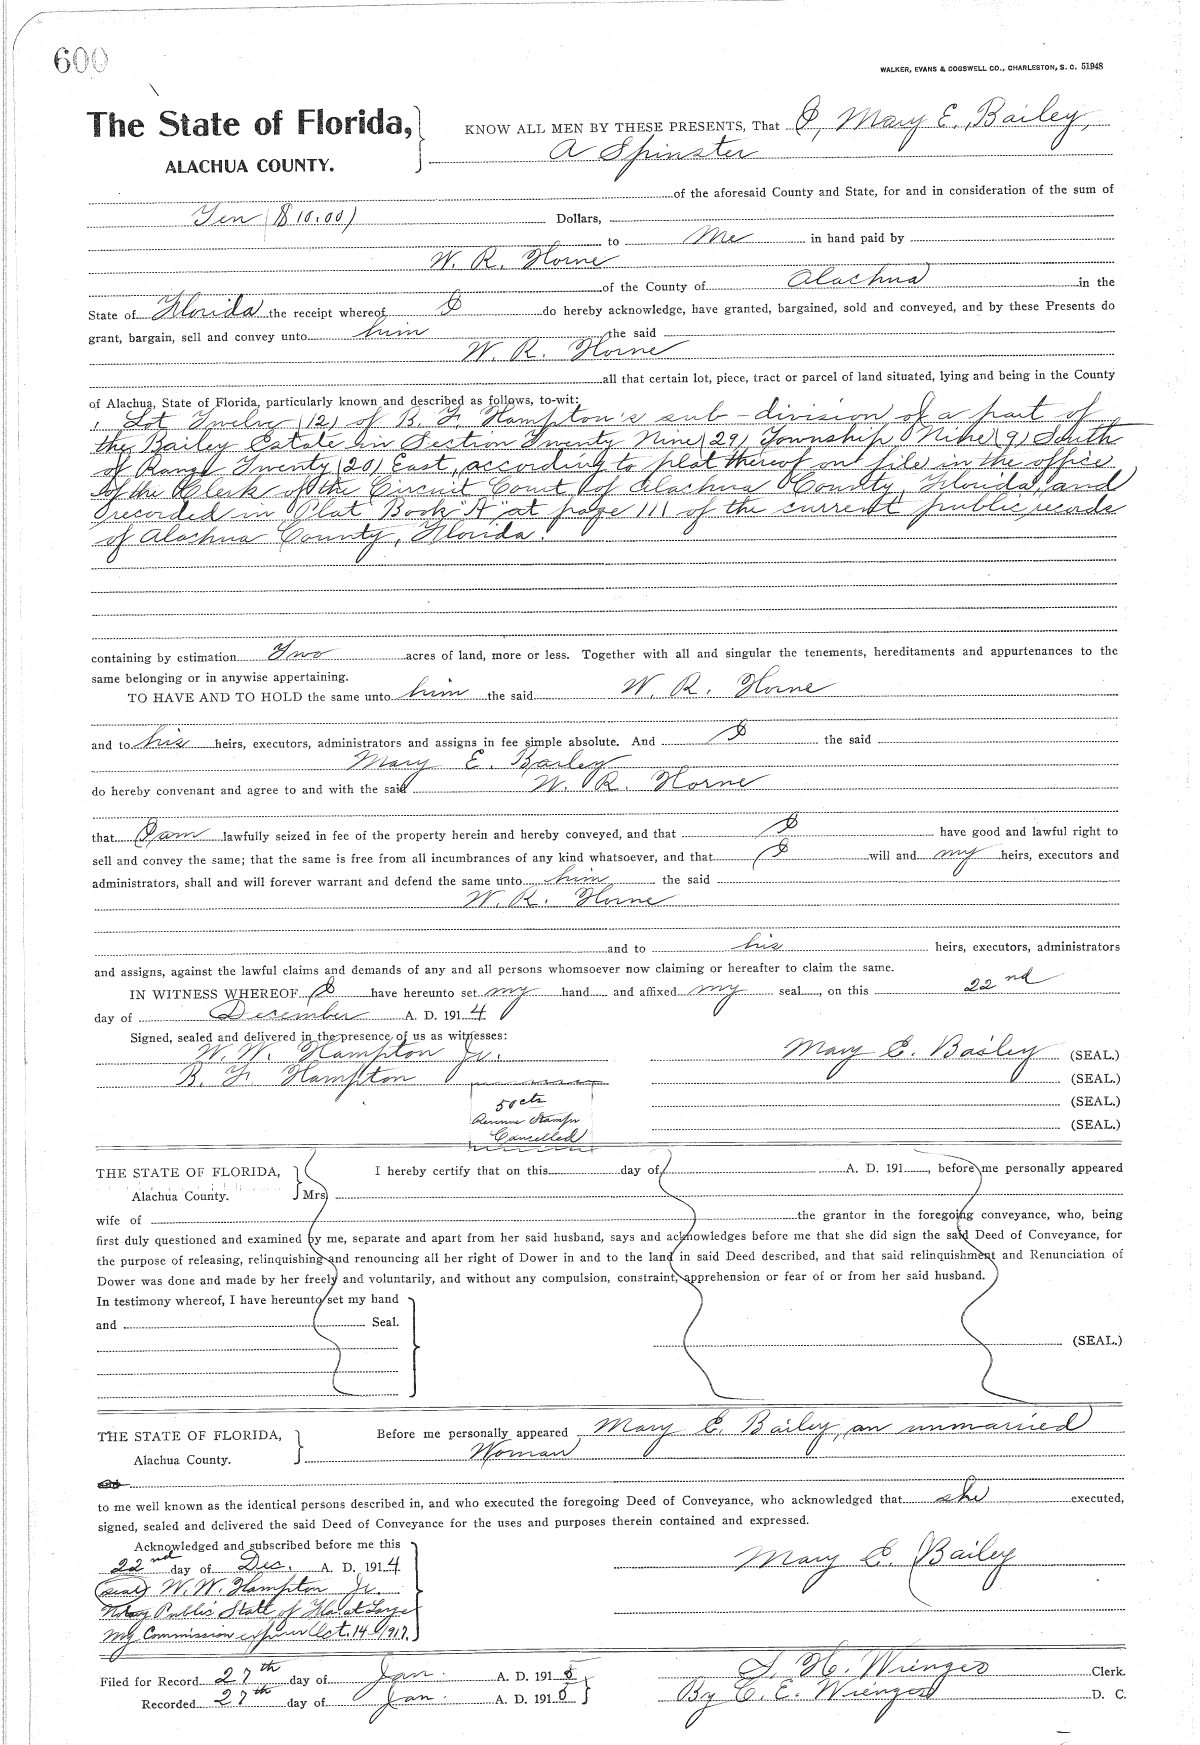 600
WALKER, EVANS & COGSWELL CO., CHARLESTON, S. C. 51948
The State of Florida,
ALACHUA COUNTY.
KNOW ALL MEN BY THESE PRESENTS, That I, Mary E. Bailey,
A Spinster
of the aforesaid County and State, for and in consideration of the sum of
Ten ($10.00) Dollars,
to Me in hand paid by
W. R. Horne
of the County of Alachua in the
State of Florida the receipt whereof I do hereby acknowledge, have granted, bargained, sold and conveyed, and by these Presents do
grant, bargain, sell and convey unto him the said
W. R. Horne
all that certain lot, piece, tract or parcel of land situated, lying and being in the County
of Alachua, State of Florida, particularly known and described as follows, to-wit:
Lot Twelve (12) of B. F. Hampton's sub-division of a part of
the Bailey Estate in Section Twenty Nine (29) Township Nine (9) South
of Range Twenty (20) East, according to plat thereof on file in the office
of the Clerk of the Circuit Court of Alachua County, Florida, and
recorded in Plat Book "A" at page 111 of the current public records
of Alachua County, Florida.
containing by estimation Two acres of land, more or less. Together with all and singular the tenements, hereditaments and appurtenances to the
same belonging or in anywise appertaining.
TO HAVE AND TO HOLD the same unto him the said W. R. Horne
and to his heirs, executors, administrators and assigns in fee simple absolute. And I the said
Mary E. Bailey
do hereby convenant and agree to and with the said W. R. Horne
that I am lawfully seized in fee of the property herein and hereby conveyed, and that I have good and lawful right to
sell and convey the same; that the same is free from all incumbrances of any kind whatsoever, and that I will and my heirs, executors and
administrators, shall and will forever warrant and defend the same unto him the said
W. R. Horne
and to his heirs, executors, administrators
and assigns, against the lawful claims and demands of any and all persons whomsoever now claiming or hereafter to claim the same.
IN WITNESS WHEREOF I have hereunto set my hand and affixed my seal, on this 22nd
day of December A. D. 1914
Signed, sealed and delivered in the presence of us as witnesses:
W. W. Hampton Jr. Mary E. Bailey (SEAL.)
B. F. Hampton (SEAL.)
50 cts (SEAL.)
Revenue Stamps (SEAL.)
Cancelled
THE STATE OF FLORIDA,
Alachua County.
I hereby certify that on this day of A. D. 191 , before me personally appeared
Mrs
wife of the grantor in the foregoing conveyance, who, being
first duly questioned and examined by me, separate and apart from her said husband, says and acknowledges before me that she did sign the said Deed of Conveyance, for
the purpose of releasing, relinquishing and renouncing all her right of Dower in and to the land in said Deed described, and that said relinquishment and Renunciation of
Dower was done and made by her freely and voluntarily, and without any compulsion, constraint, apprehension or fear of or from her said husband.
In testimony whereof, I have hereunto set my hand
and Seal.
(SEAL.)
THE STATE OF FLORIDA,
Alachua County.
Before me personally appeared Mary E. Bailey, an unmarried
Woman
and
to me well known as the identical persons described in, and who executed the foregoing Deed of Conveyance, who acknowledged that she executed,
signed, sealed and delivered the said Deed of Conveyance for the uses and purposes therein contained and expressed.
Acknowledged and subscribed before me this
22nd day of Dec. A. D. 1914 Mary E. Bailey
(seal) W. W. Hampton Jr.
Notary Public State of Fla. at Large
My Commission expires Oct. 14 1917.
Filed for Record 27th day of Jan. A. D. 1915 S. H. Wienges Clerk.
Recorded 27th day of Jan. A. D. 1915 By C. E. Wienges D. C.